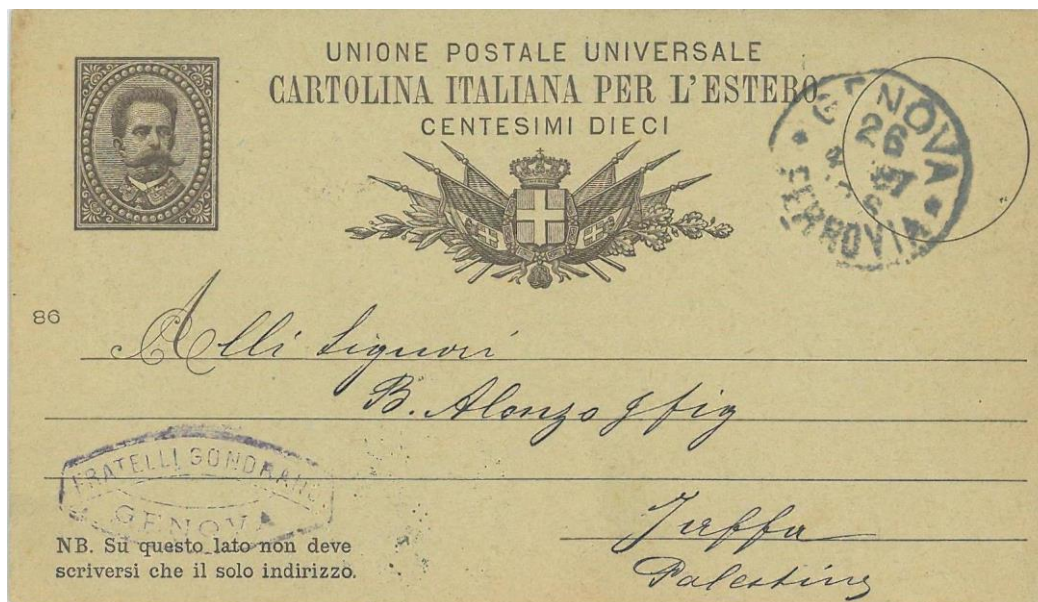 UNIONE POSTALE UNIVERSALE
CARTOLINA ITALIANA PER L'ESTERO
CENTESIMI DIECI
GENOVA
26
FERROVIA
86
Alli Signori
B. Alonzo & fig
FRATELLI GONDRAND
GENOVA
Jaffa
Palestina
NB. Su questo lato non deve
scriversi che il solo indirizzo.